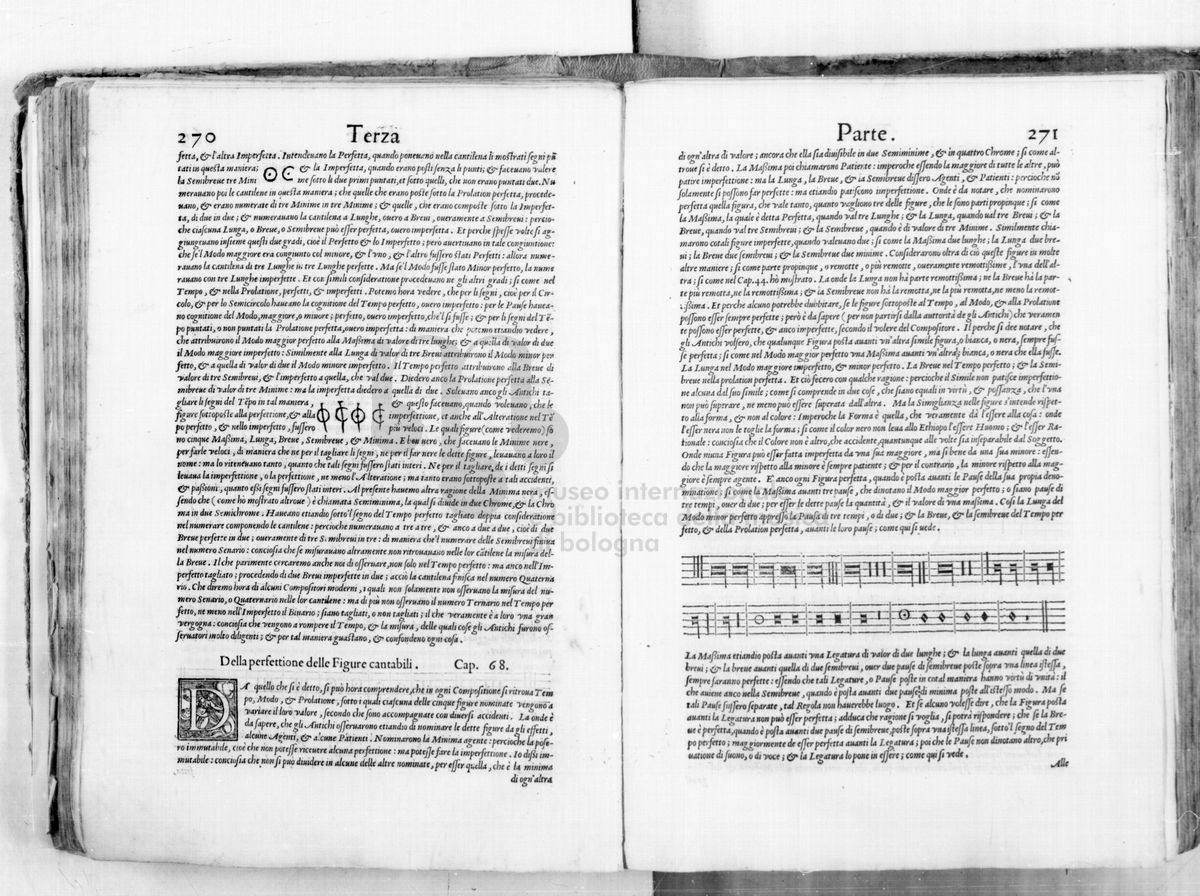 270 Terza
fetta, & l'altra Imperfetta. Intendeuano la Perfetta, quando poneuano nella cantilena li mostrati segni pũ
tati in questa maniera; & la Imperfetta, quando erano posti senza li punti; & faceuano valere
la Semibreue tre Mini me sotto li due primi puntati, et sotto quelli, che non erano puntati due. Nu
merauano poi le cantilene in questa maniera; che quelle che erano poste sotto la Prolation perfetta, procede-
uano, & erano numerate di tre Minime in tre Minime; & quelle, che erano composte sotto la Imperfet-
ta, di due in due; & numerauano la cantilena a Lunghe, ouero a Breui, oueramente a Semibreui: percio-
che ciascuna Lunga, o Breue, o Semibreue può esser perfetta, ouero imperfetta. Et perche spesse volte si ag-
giungeuano insieme questi due gradi, cioè il Perfetto & lo Imperfetto; però auertiuano in tale congiuntione:
che se'l Modo maggiore era congiunto col minore, & l'vno, & l'altro fussero stati Perfetti: allora nume-
rauano la cantilena di tre Lunghe in tre Lunghe perfette. Ma se'l Modo fusse stato Minor perfetto, la nume
rauano con tre Lunghe imperfette. Et con simili considerationi procedeuano ne gli altri gradi; si come nel
Tempo, & nella Prolatione, perfetti, & imperfetti. Potemo hora vedere, che per li segni, cioè per il Cir-
colo, & per lo Semicircolo haueano la cognitione del Tempo perfetto, ouero imperfetto: per le Pause haueа-
no cognitione del Modo, maggiore, o minore; perfetto, ouero imperfetto, che'l si fusse; & per li segni del Tẽ-
po puntati, o non puntati la Prolatione perfetta, ouero imperfetta: di maniera che potemo etiandio vedere,
che attribuirono il Modo maggior perfetto alla Massima di valore di tre lunghe; & a quella di valor di due
il Modo maggiore imperfetto: Similmente alla Lunga di valor di tre Breui attribuirono il Modo minor per
fetto, & a quella di valor di due il Modo minore imperfetto. Il Tempo perfetto attribuirono alla Breue di
valore di tre Semibreui, & l'imperfetto a quella, che val due. Diedero anco la Prolatione perfetta alla Se-
mibreue di valor di tre Minime: ma la imperfetta diedero a quella di due. Soleuano anco gli Antichi ta-
gliare li segni del Tẽpo in tal maniera, & questo faceuano, quando voleuano, che le
figure sottoposte alla perfettione, & alla imperfettione, et anche all'Alteratione nel Tẽ
po perfetto, & nello imperfetto, fussero più veloci. Le quali figure (come vederemo) so
no cinque Massima, Lunga, Breue, Semibreue, & Minima. E ben vero, che faceuano le Minime nere,
per farle veloci, di maniera che ne per il tagliare li segni, ne per il far nere le dette figure, leuauano a loro il
nome: ma lo riteneuano tanto, quanto che tali segni fussero stati interi. Ne per il tagliare, de i detti segni si
leuaua la imperfettione, o la perfettione, ne meno l'Alteratione; ma tanto erano sottoposte a tali accidenti,
& passioni, quanto essi segni fussero stati interi. Al presente hauemo altra ragione della Minima nera, es
sendo che (come hò mostrato altroue) è chiamata Semiminima, la qual si diuide in due Chrome, & la Chro
ma in due Semichrome. Haueano etiandio sotto'l segno del Tempo perfetto tagliato doppia consideratione
nel numerare componendo le cantilene: percioche numerauano a tre a tre, & anco a due a due, cioè di due
Breue perfette in due; oueramente di tre Semibreui in tre: di maniera che'l numerare delle Semibreui finiua
nel numero Senario: conciosia che se misurauano altramente non ritrouauano nelle lor cãtilene la misura del-
la Breue. Il che parimente cercaremo anche noi di osseruare, non solo nel Tempo perfetto: ma anco nell'Im-
perfetto tagliato; procedendo di due Breui imperfette in due; acciò la cantilena finisca nel numero Quaterna
rio. Che diremo hora di alcuni Compositori moderni, i quali non solamente non osseruano la misura del nu-
mero Senario, o Quaternario nelle lor cantilene: ma di più non osseruano il numero Ternario nel Tempo per
fetto, ne meno nell'Imperfetto il Binario; siano tagliati, o non tagliati; il che veramente è a loro vna gran
vergogna: conciosia che vengono a rompere il Tempo, & la misura, delle quali cose gli Antichi furono os-
seruatori molto diligenti; & per tal maniera guastano, & confondeno ogni cosa.
Della perfettione delle Figure cantabili. Cap. 68.
DA quello che si è detto, si può hora comprendere, che in ogni Compositione si ritroua Tem
po, Modo, & Prolatione, sotto i quali ciascuna delle cinque figure nominate vengono a
variare il loro valore, secondo che sono accompagnate con diuersi accidenti. La onde è
da sapere, che gli Antichi osseruarono etiandio di nominare le dette figure da gli effetti,
alcune Agenti, & alcune Patienti. Nominarono la Minima agente: percioche la pose-
ro immutabile, cioè che non potesse riceuere alcuna perfettione: ma potesse fare la imperfettione. Io dissi im-
mutabile: conciosia che non si può diuidere in alcune delle altre nominate, per esser quella, che è la minima
di ogn'altra
Parte. 271
di ogn'altra di valore; ancora che ella sia diuisibile in due Semiminime, & in quattro Chrome; si come al-
troue si è detto. La Massima poi chiamarono Patiente: imperoche essendo la maggiore di tutte le altre, può
patire imperfettione: ma la Lunga, la Breue, & la Semibreue dissero Agenti, & Patienti: percioche nõ
solamente si possono far perfette: ma etiandio patiscono imperfettione. Onde è da notare, che nominarono
perfetta quella figura, che vale tanto, quanto vagliono tre delle figure, che le sono parti propinque; si come
la Massima, la quale è detta Perfetta, quando val tre Lunghe; & la Lunga, quando val tre Breui; & la
Breue, quando val tre Semibreui; & la Semibreue, quando è di valore di tre Minime. Similmente chia-
marono cotali figure imperfette, quando valeuano due; si come la Massima due lunghe; la Lunga due bre-
ui; la Breue due semibreui; & la Semibreue due minime. Considerarono oltra di ciò queste figure in molte
altre maniere; si come parte propinque, o remotte, o più remotte, oueramente remottissime, l'vna dell'al-
tra; si come nel Cap. 44. hò mostrato. La onde la Lunga non hà parte remottissima; ne la Breue hà la par-
te più remotta, ne la remottissima; & la Semibreue non hà la remotta, ne la più remotta, ne meno la remot-
tissima. Et perche alcuno potrebbe dubbitare, se le figure sottoposte al Tempo, al Modo, & alla Prolatione
possono esser sempre perfette; però è da sapere (per non partirsi dalla autorità de gli Antichi) che veramen
te possono esser perfette, & anco imperfette, secondo il volere del Compositore. Il perche si dee notare, che
gli Antichi volsero, che qualunque Figura posta auanti vn'altra simile figura, o bianca, o nera, sempre fus-
se perfetta; si come nel Modo maggior perfetto vna Massima auanti vn'altra; bianca, o nera che ella fusse.
La Lunga nel Modo maggior imperfetto, & minor perfetto. La Breue nel Tempo perfetto; & la Semi-
breue nella prolation perfetta. Et ciò fecero con qualche ragione: percioche il Simile non patisce imperfettio-
ne alcuna dal suo simile; come si comprende in due cose, che siano equali in virtù, & possanza, che l'vna
non può superare, ne meno può essere superata dall'altra. Ma la Simiglianza nelle figure s'intende rispet-
to alla forma, & non al colore: Imperoche la Forma è quella, che veramente dà l'essere alla cosa: onde
l'esser nera non le toglie la forma; si come il color nero non leua allo Ethiopo l'essere Huomo; & l'esser Ra-
tionale: conciosia che il Colore non è altro, che accidente, quantunque alle volte sia inseparabile dal Soggetto.
Onde niuna Figura può esser fatta imperfetta da vna sua maggiore, ma si bene da vna sua minore: essen-
do che la maggiore rispetto alla minore è sempre patiente; & per il contrario, la minore rispetto alla mag-
giore è sempre agente. E' anco ogni Figura perfetta, quando è posta auanti le Pause della sua propia deno-
minatione; si come la Massima auanti tre pause, che dinotano il Modo maggior perfetto; o siano pause di
tre tempi, ouer di due; per esser le dette pause la quantità, & il valore di vna massima. Cosi la Lunga del
Modo minor perfetto appresso la Pausa di tre tempi, o di due; & la Breue, & la semibreue del Tempo per
fetto, & della Prolation perfetta, auanti le loro pause; come qui si vede.
La Massima etiandio posta auanti vna Legatura di valor di due lunghe; & la lunga auanti quella di due
breui; & la breue auanti quella di due semibreui, ouer due pause di semibreue poste sopra vna linea istessa,
sempre saranno perfette: essendo che tali Legature, o Pause poste in cotal maniera hanno vertù di vnità: il
che auiene anco nella Semibreue, quando è posta auanti due pause di minima poste all'istesso modo. Ma se
tali Pause fussero separate, tal Regola non hauerebbe luogo. Et se alcuno volesse dire, che la Figura posta
auanti la Legatura non può esser perfetta; adduca che ragione si voglia, si potrà rispondere; che se la Bre-
ue è perfetta, quando è posta auanti due pause di semibreue, poste sopra vna istessa linea, sotto'l segno del Tem
po perfetto; maggiormente de esser perfetta auanti la Legatura; poi che le Pause non dinotano altro, che pri
uatione di suono, o di voce; & la Legatura lo pone in essere; come qui si vede.
Alle
museo internazionale
biblioteca della musica
bologna